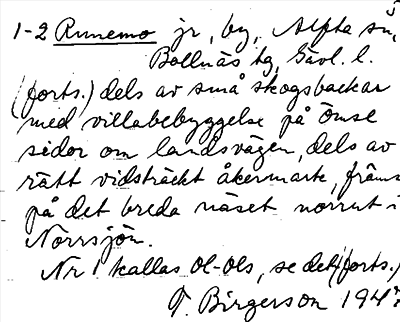 1-2 Runemo jr, by, Alfta sn,
Bollnäs tg, Gävl. l.
(forts.) dels av små skogsbackar
med villabebyggelse på ömse
sidor om landsvägen, dels av
rätt vidsträckt åkermark, främs
på det breda näset norrut i
Norrsjön.
Nr 1 kallas Ol-Ols, se det! (forts.)
T. Birgerson 194